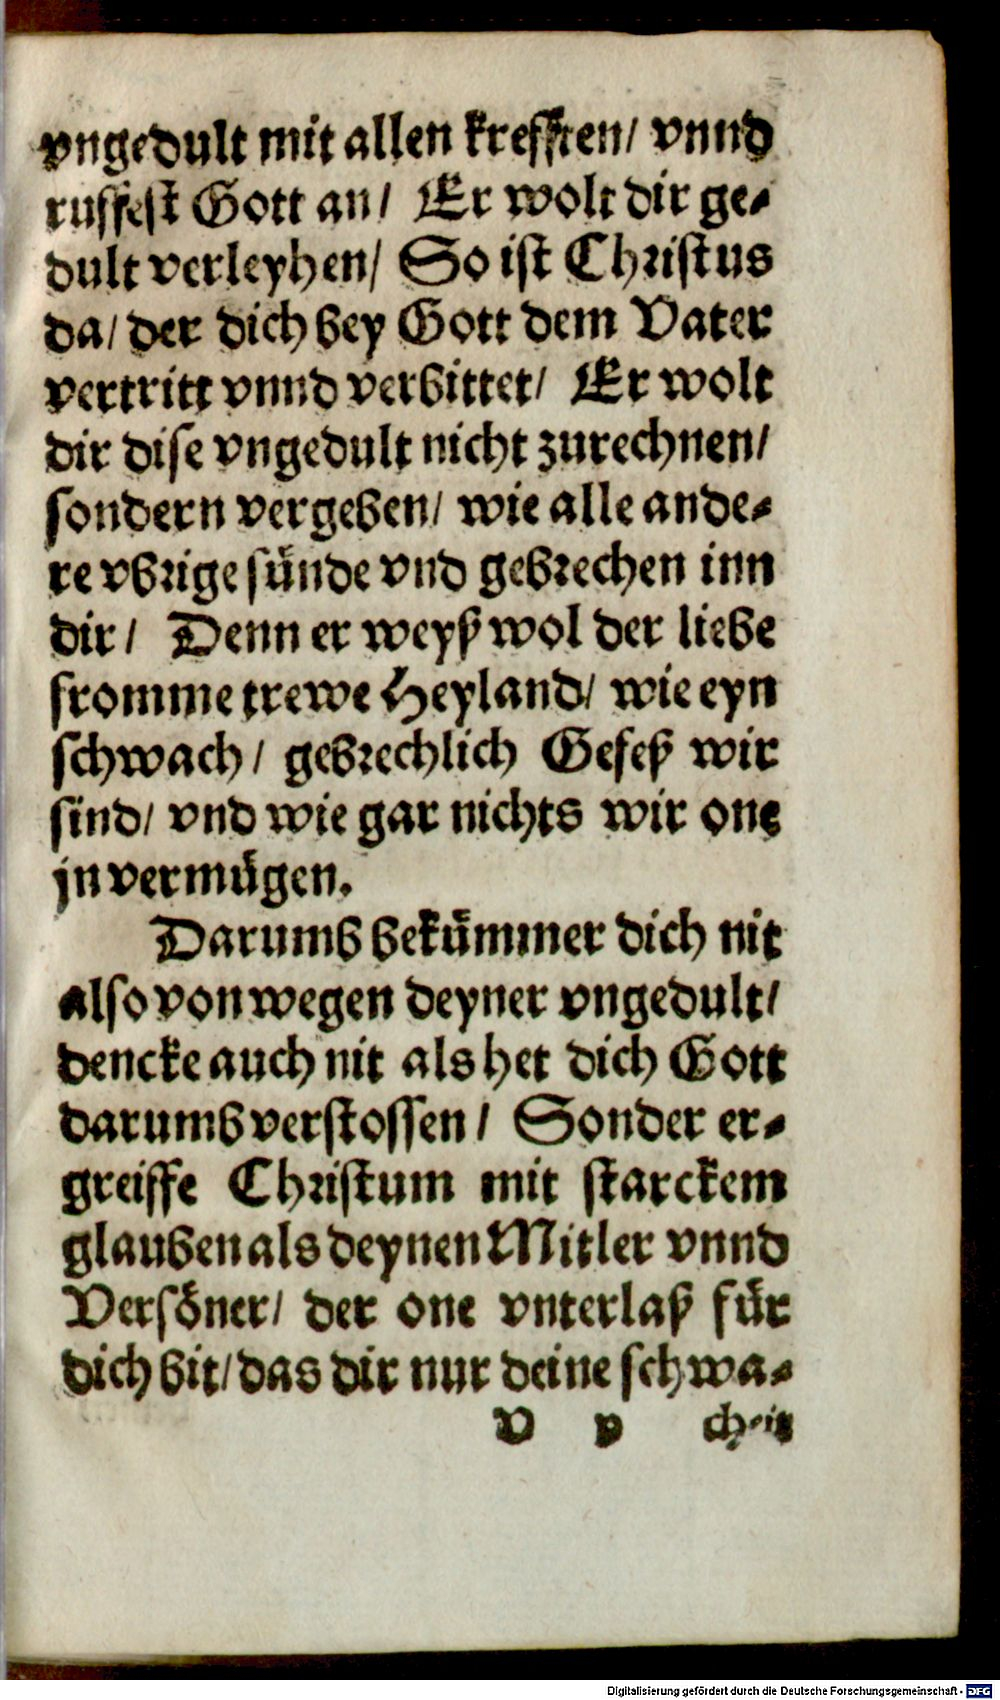 vngedult mit allen krefften/ vnnd
ruffest Gott an/ Er wolt dir ge-
dult verleyhen/ So ist Christus
da/ der dich bey Gott dem Vater
vertritt vnnd verbittet/ Er wolt
dir dise vngedult nicht zurechnen/
sondern vergeben/ wie alle ande-
re vbrige sünde vnd gebrechen inn
dir/ Denn er weyß wol der liebe
fromme trewe Heyland/ wie eyn
schwach/ gebrechlich Gefeß wir
sind/ vnd wie gar nichts wir one
jn vermügen.
Darumb bekümmer dich nit
also von wegen deyner vngedult/
dencke auch nit als het dich Gott
darumb verstossen/ Sonder er-
greiffe Christum mit starckem
glauben als deynen Mitler vnnd
Versöner/ der one vnterlaß für
dich bit/ das dir nur deine schwa-
V v
Digitalisierung gefördert durch die Deutsche Forschungsgemeinschaft - DFG